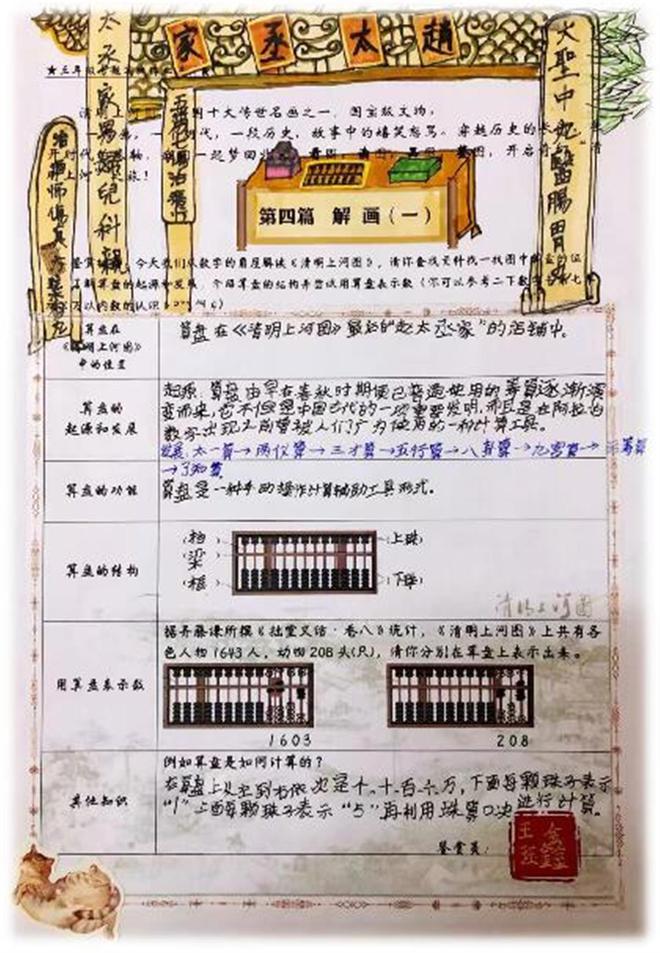 趙太丞家
大聖中丸醫腸胃
太丞家男婦兒科
五勞七
★三年级
清明上
国十大传世名画之一，国宝级文物，
时代，一段历史，故事中的嬉笑怒骂。穿越历史的长
一起梦回北
开启
上河
旅！
第四篇 解 画（一）
鉴赏
今天我们从数学的角度解读《清明上河图》，请你查找资料找一找图中算盘的位
了解算盘的起源和发展，介绍算盘的结构并尝试用算盘表示数（你可以参考二下数学
七
万以内数的认识
算盘在
《清明上河图》
中的位置
算盘在《清明上河图》最后的"赵太丞家"的店铺中。
算盘的
起源和发展
起源：算盘由早在春秋时期便已普遍使用的筹算逐渐演
变而来，它不但是中国古代的一项重要发明，而且是在阿拉伯
数字出现之前曾被人们广为使用的一种计算工具。
发展：太一算→两仪算→三才算→五行算→八卦算→九宫算→
→了知算
算盘的功能
算盘是一种手动操作计算辅助工具形式。
算盘的结构
（档）
（梁）
（框）
（上珠）
（下珠）
清明上河图
用算盘表示数
据齐藤谦所撰《拙堂文话·卷八》统计，《清明上河图》上共有各
色人物1643人，动物208头(只)，请你分别在算盘上表示出来。
1603
208
其他知识
例如算盘是如何计算的？
在算盘上从左到右依次是个、十、百、千、万，下面每颗珠子表示
"1"上面每颗珠子表示"5"再利用珠算口诀进行计算。
鉴赏员：